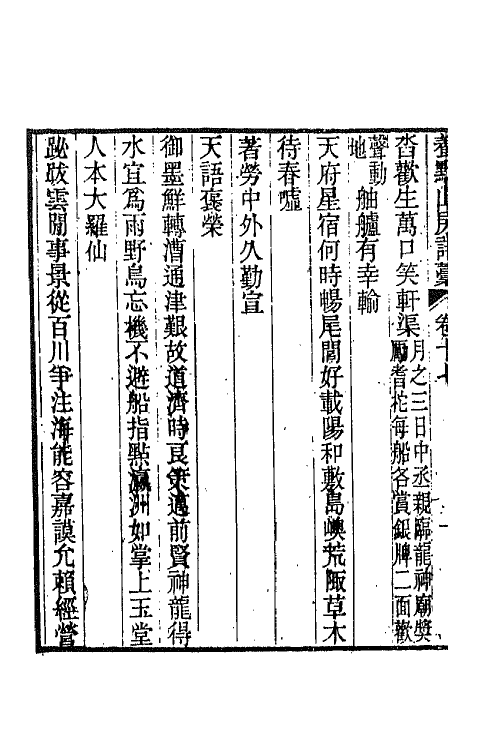 養默山房詩藁 卷十七
沓歡生萬口笑軒渠月之三日中丞親臨龍神廟獎
勵耆柁每船各賞銀牌二面歡
聲動
地 舳艫有幸輸
天府星宿何時暢尾閭好載陽和敷島嶼荒陬草木
待春噓
著勞中外久勤宣
天語褒榮
御墨鮮轉漕通津艱故道濟時良策邁前賢神龍得
水宜爲雨野鳥忘機不避船指點瀛洲如掌上玉堂
人本大羅仙
跐跋雲閒事景從百川爭注海能容嘉謨允賴經營